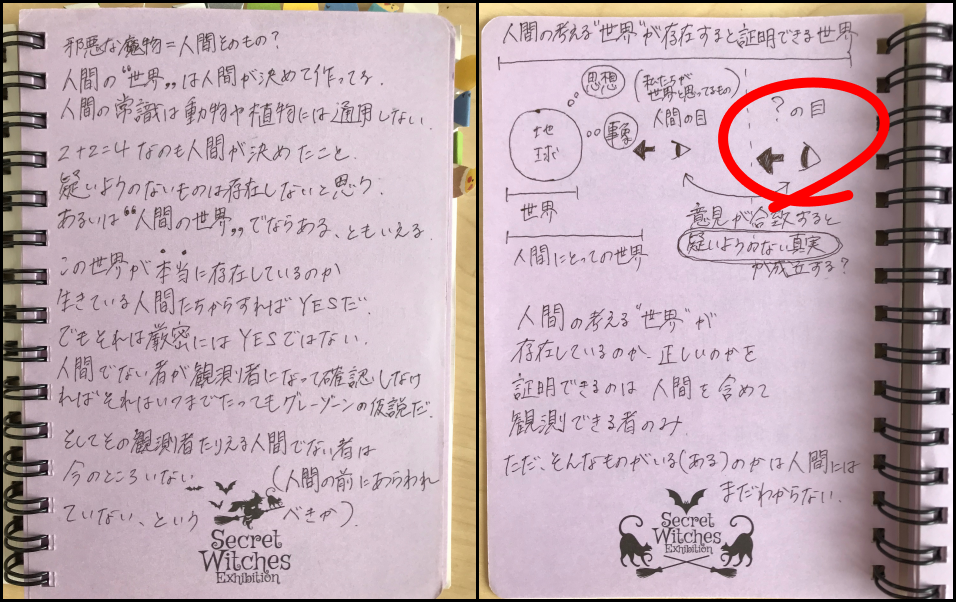 邪悪な魔物=人間そのもの?
人間の〝世界〟は人間が決めて作ってる.
人間の常識は動物や植物には通用しない.
2+2=4なのも人間が決めたこと.
疑いようのないものは存在しないと思う.
あるいは〝人間の世界〟でならある、ともいえる.
この世界が本当に存在しているのか
生きている人間たちからすればYESだ.
でもそれは厳密にはYESではない.
人間でない者が観測者になって確認しなけ
ればそれはいつまでたってもグレーゾーンの仮説だ.
そしてその観測者たりえる人間でない者は
今のところいない(人間の前にあらわれ
ていない、というべきか).
Secret
Witches
Exhibition
人間の考える〝世界〟が存在すると証明できる世界
思想
(私たちが
世界と思ってるもの)
地
球
人間の目
?の目
世界
人間にとっての世界
意見が合致すると
疑いようのない真実
が成立する?
人間の考える〝世界〟が
存在しているのか、正しいのかを
証明できるのは 人間を含めて
観測できる者のみ.
ただ、そんなものがいる(ある)のかは人間には
まだわからない.
Secret
Witches
Exhibition